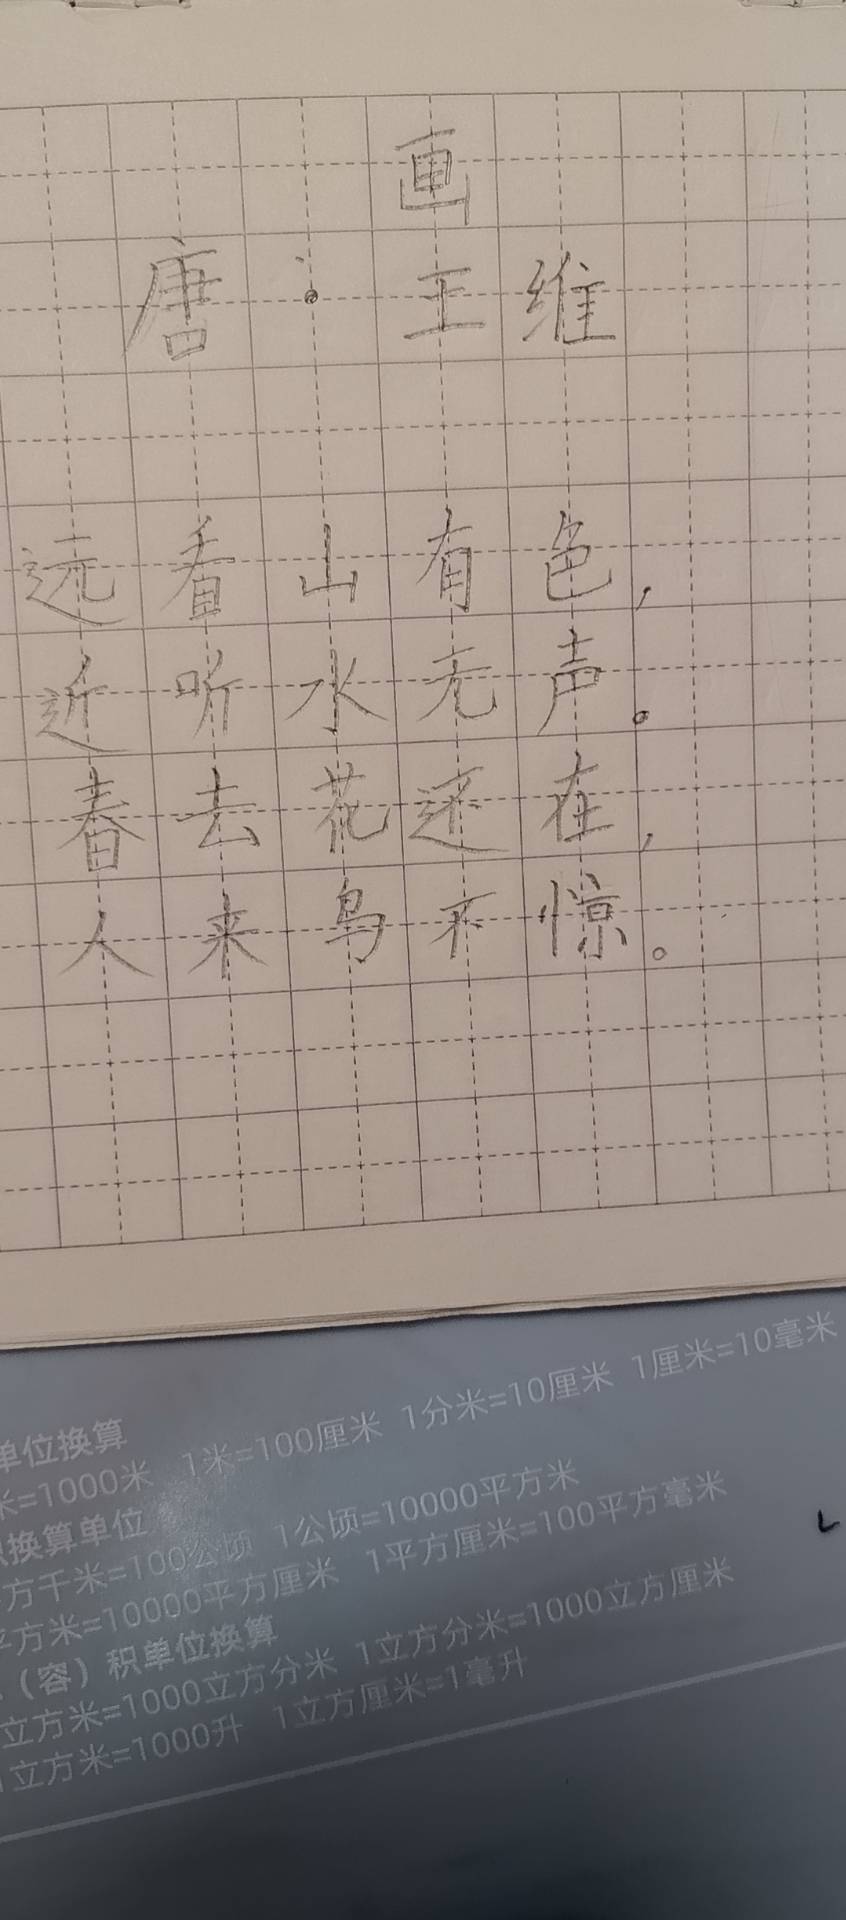 画
唐·王维
远看山有色，
近听水无声。
春去花还在，
人来鸟不惊。
单位换算
米=1000米 1米=100厘米 1分米=10厘米 1厘米=10毫米
换算单位
方千米=100公顷 1公顷=10000平方米
平方米=10000平方厘米 1平方厘米=100平方毫米
（容）积单位换算
立方米=1000立方分米 1立方分米=1000立方厘米
1立方米=1000升 1立方厘米=1毫升